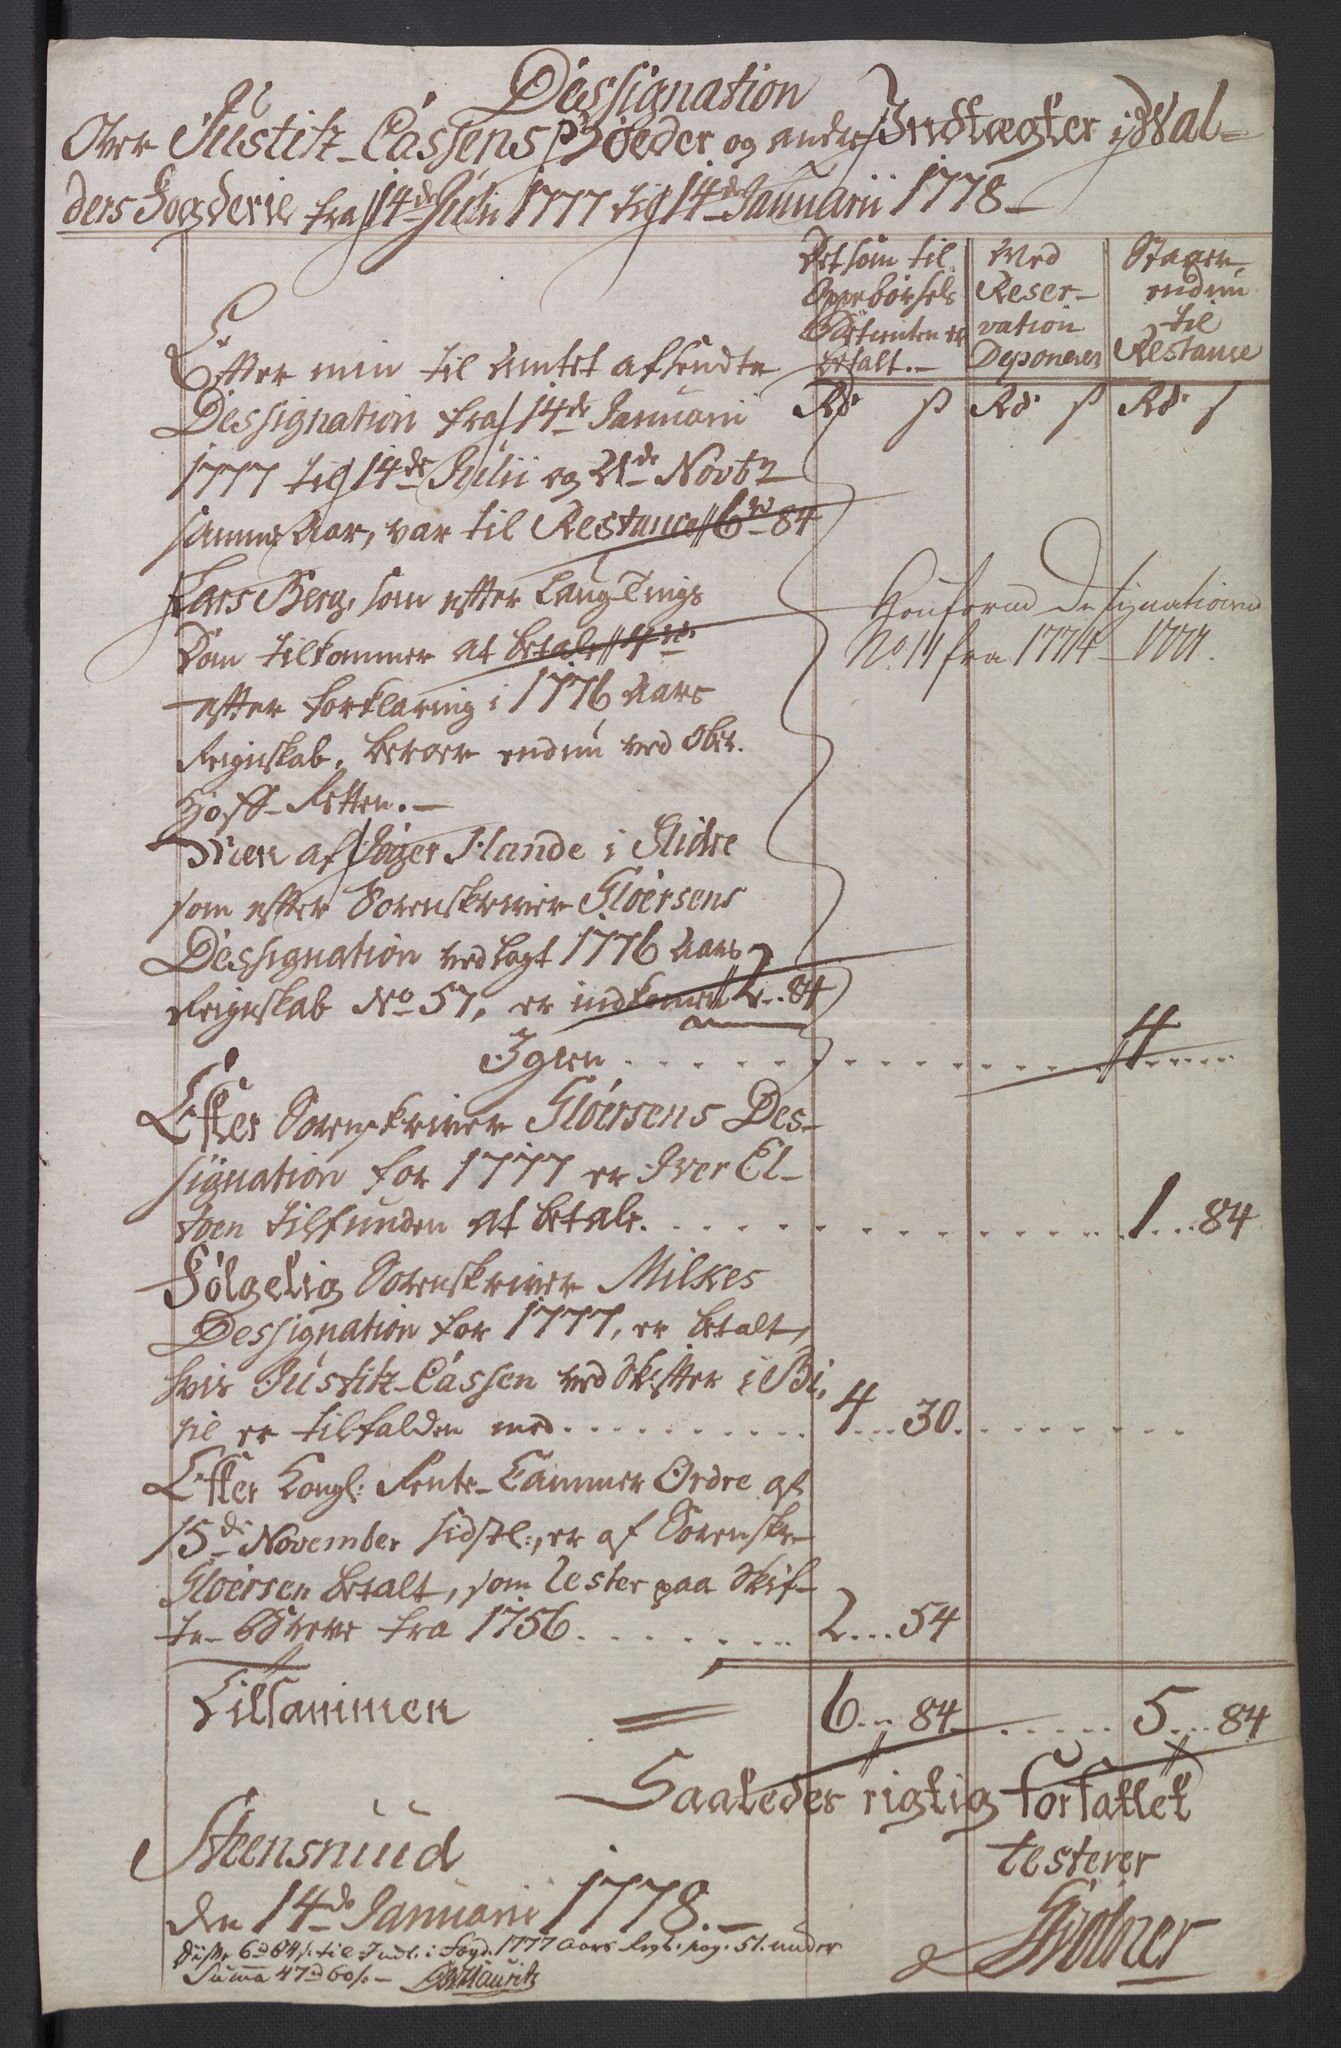 Dessignation
Over Justitz-Cassens Bøeder og andre Indtægter i Wal-
ders Fogderie fra 14de Julii 1777 til 14de Januarii 1778
Det som til
Oppebørsels
Betienten er
betalt.
Med
Reser-
vation
Deponeres
Staaer
endnu
til
Restance
Efter min til Amtet afsendte
Dessignation fra 14de Januarii
Rd. s Rd. s Rd. s
1777 til 14de Julii og 21de Novbr
samme Aar, var til Restance 6rd 84
Lars Berg, som efter Laug-Tings
Dom tilkommer at betale 4rd.
efter forklaring i 1776 Aars
Reignskab, beroer endnu ved Ober-
Hoff-Retten.
Conform Designationen
No. 11 fra 1774 - 1777.
Men af Hande i Slidre
som efter Sorenskriver Gløersens
Dessignation vedlagt 1776 Aars
Reignskab No 57, er indkomen 2.. 84
Igien . . . 4
Efter Sorenskriver Gløersens Des-
signation for 1777 er Iver El-
tilfunden at betale . . . 1 . . . 84
Følgelig Sorenskriver
Dessignation for 1777, er betalt,
hvis Justitz-Cassen ved Skifter i
er tilfalden med . . . 4 . . . 30.
Efter Kongl: Rente-Cammer Ordre af
15de November sidstl:, er af Sorenskr-
Gløersen betalt, som Lester paa Skif-
te-Breve fra 1756 . . . 2 . . . 54
Tilsammen = 6 . . 84 . . . 5 . . . 84
Saaledes rigtig forfattet
testerer
Steensruud
den 14de Januarii 1778.
Disse 6rd 84s. til Indt. i Fogd. 1777 Aars Regk. pag. 51. under
Summa 47rd 60s